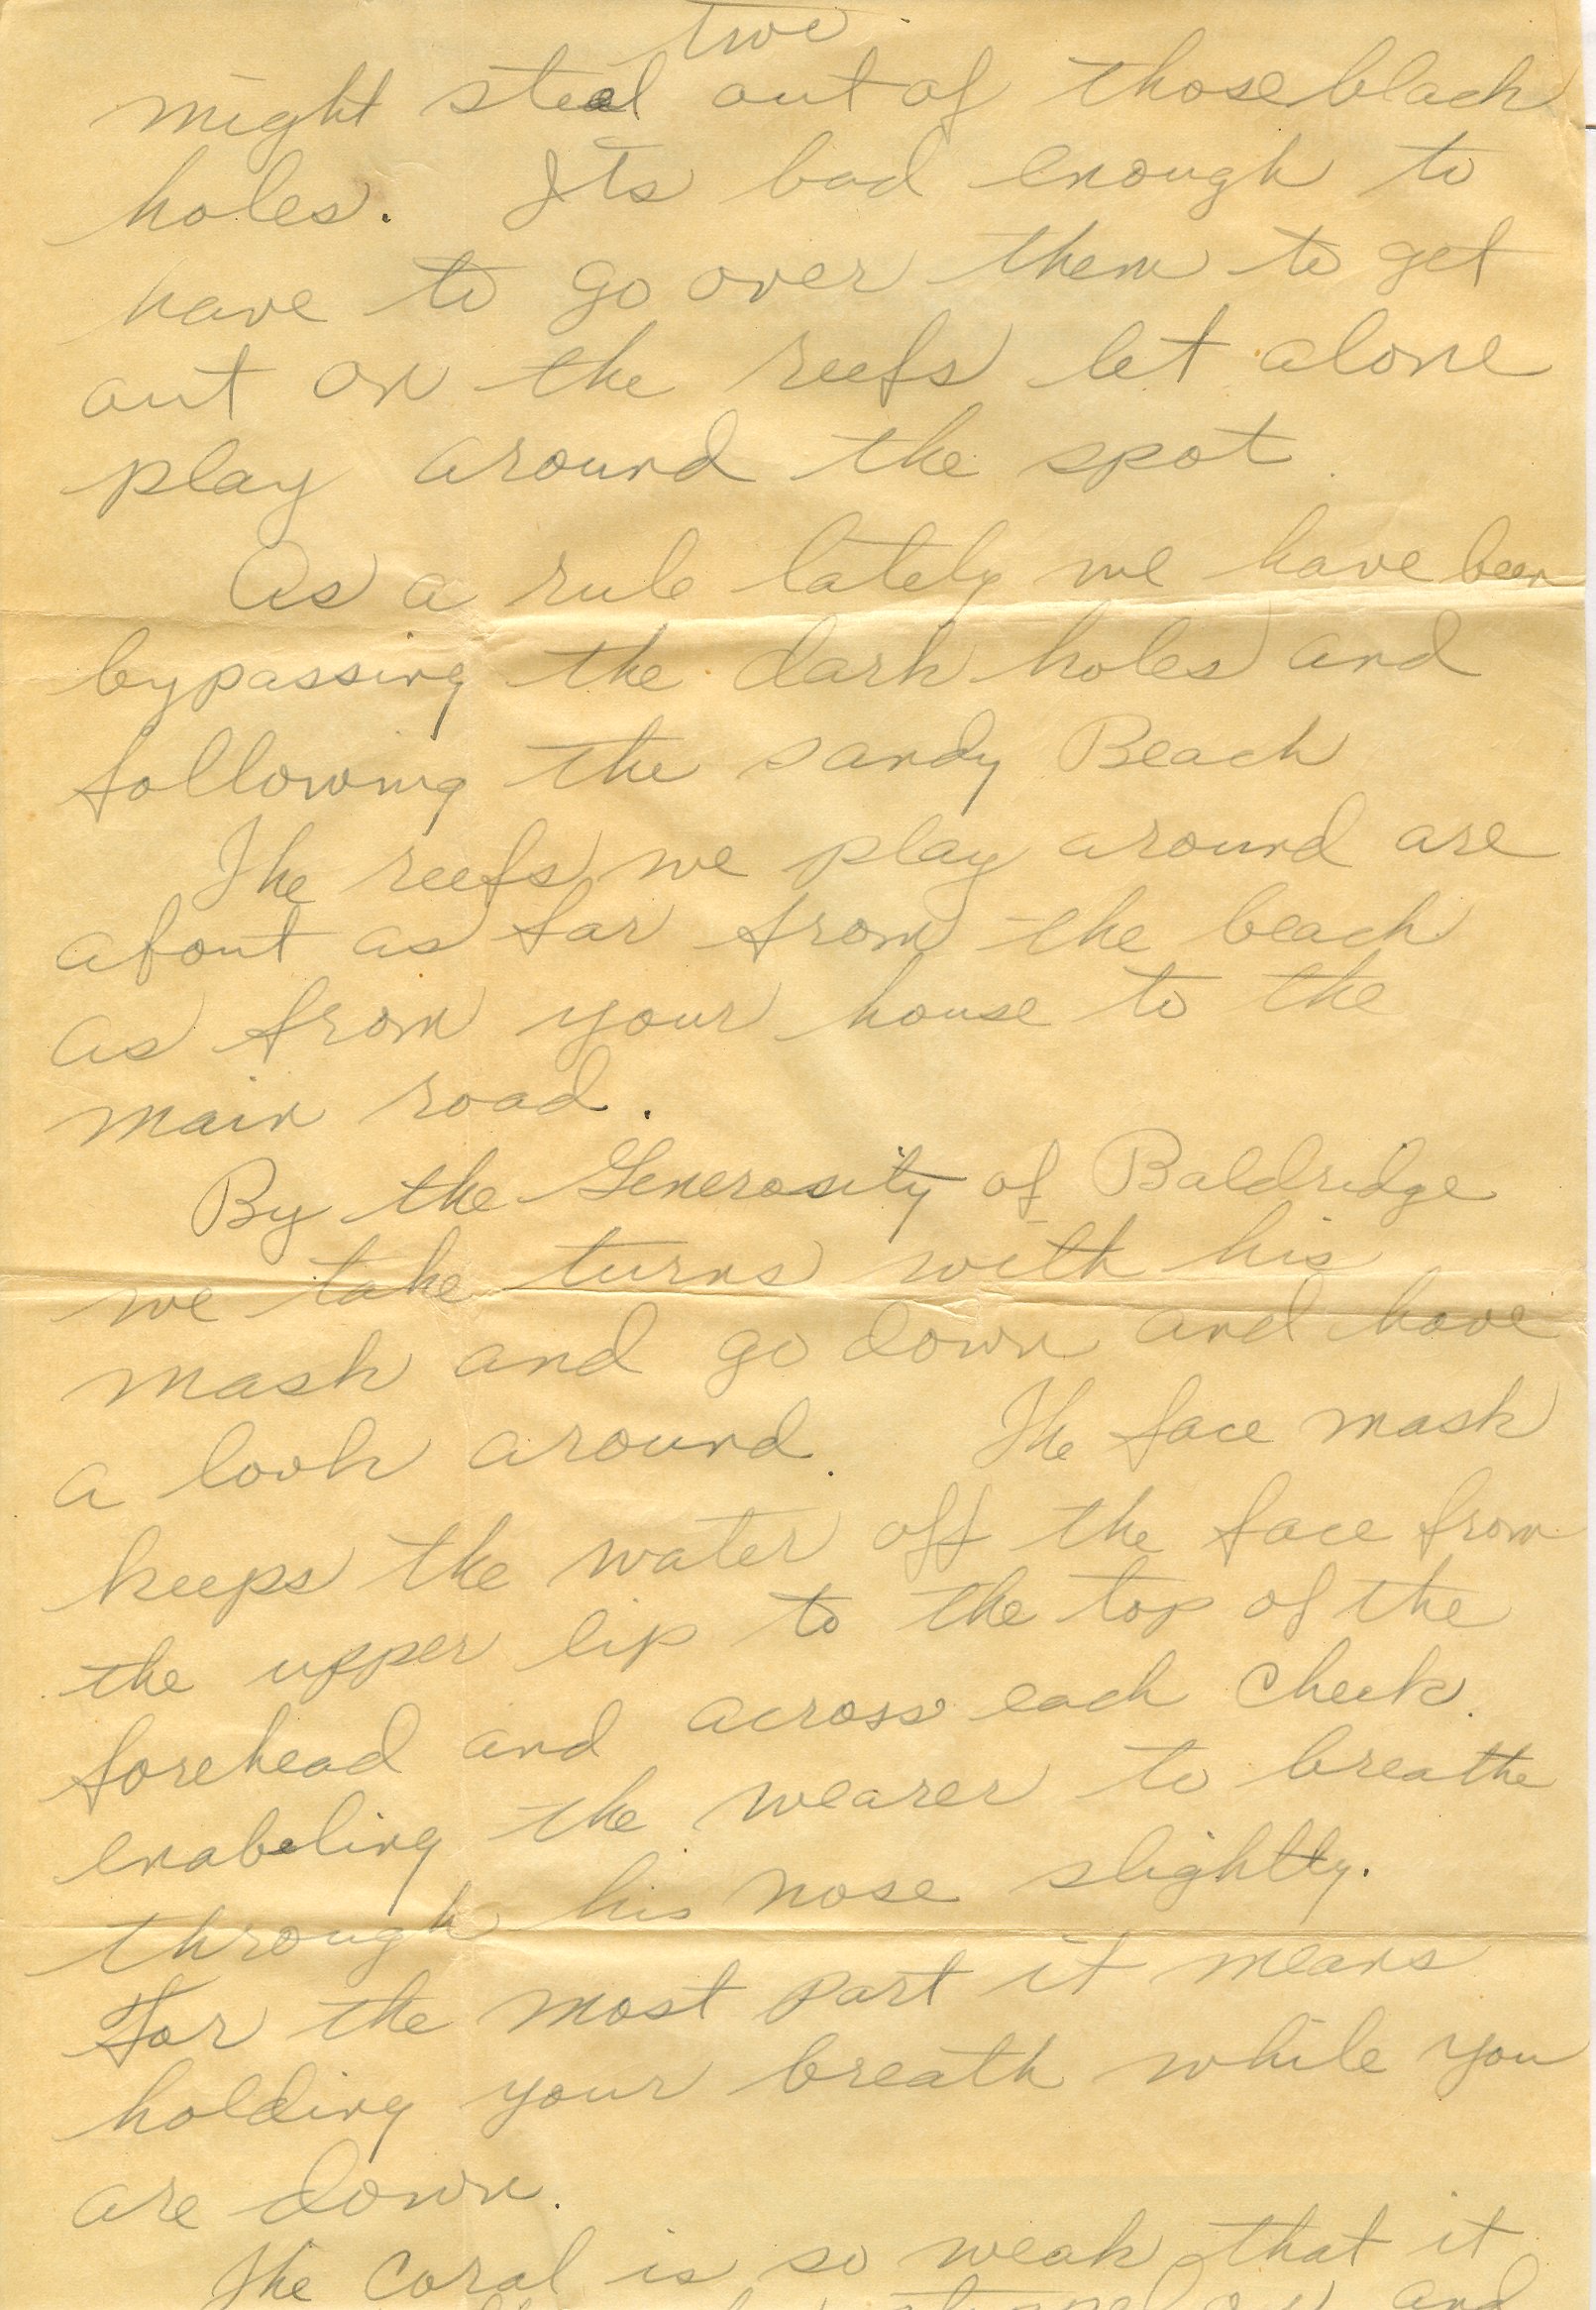 two
might steal out of those black
holes. Its bad enough to
have to go over them to get
out on the reefs let alone
play around the spot.
As a rule lately we have been
bypassing the dark holes and
following the sandy Beach
The reefs we play around are
about as far from the beach
as from your house to the
main road.
By the Generosity of Baldridge
we take turns with his
mask and go down and have
a look around. The face mask
keeps the water off the face from
the upper lip to the top of the
forehead and across each cheek.
enabeling the wearer to breathe
through his nose slightly.
For the most part it means
holding your breath while you
are down.
The coral is so weak that it
and